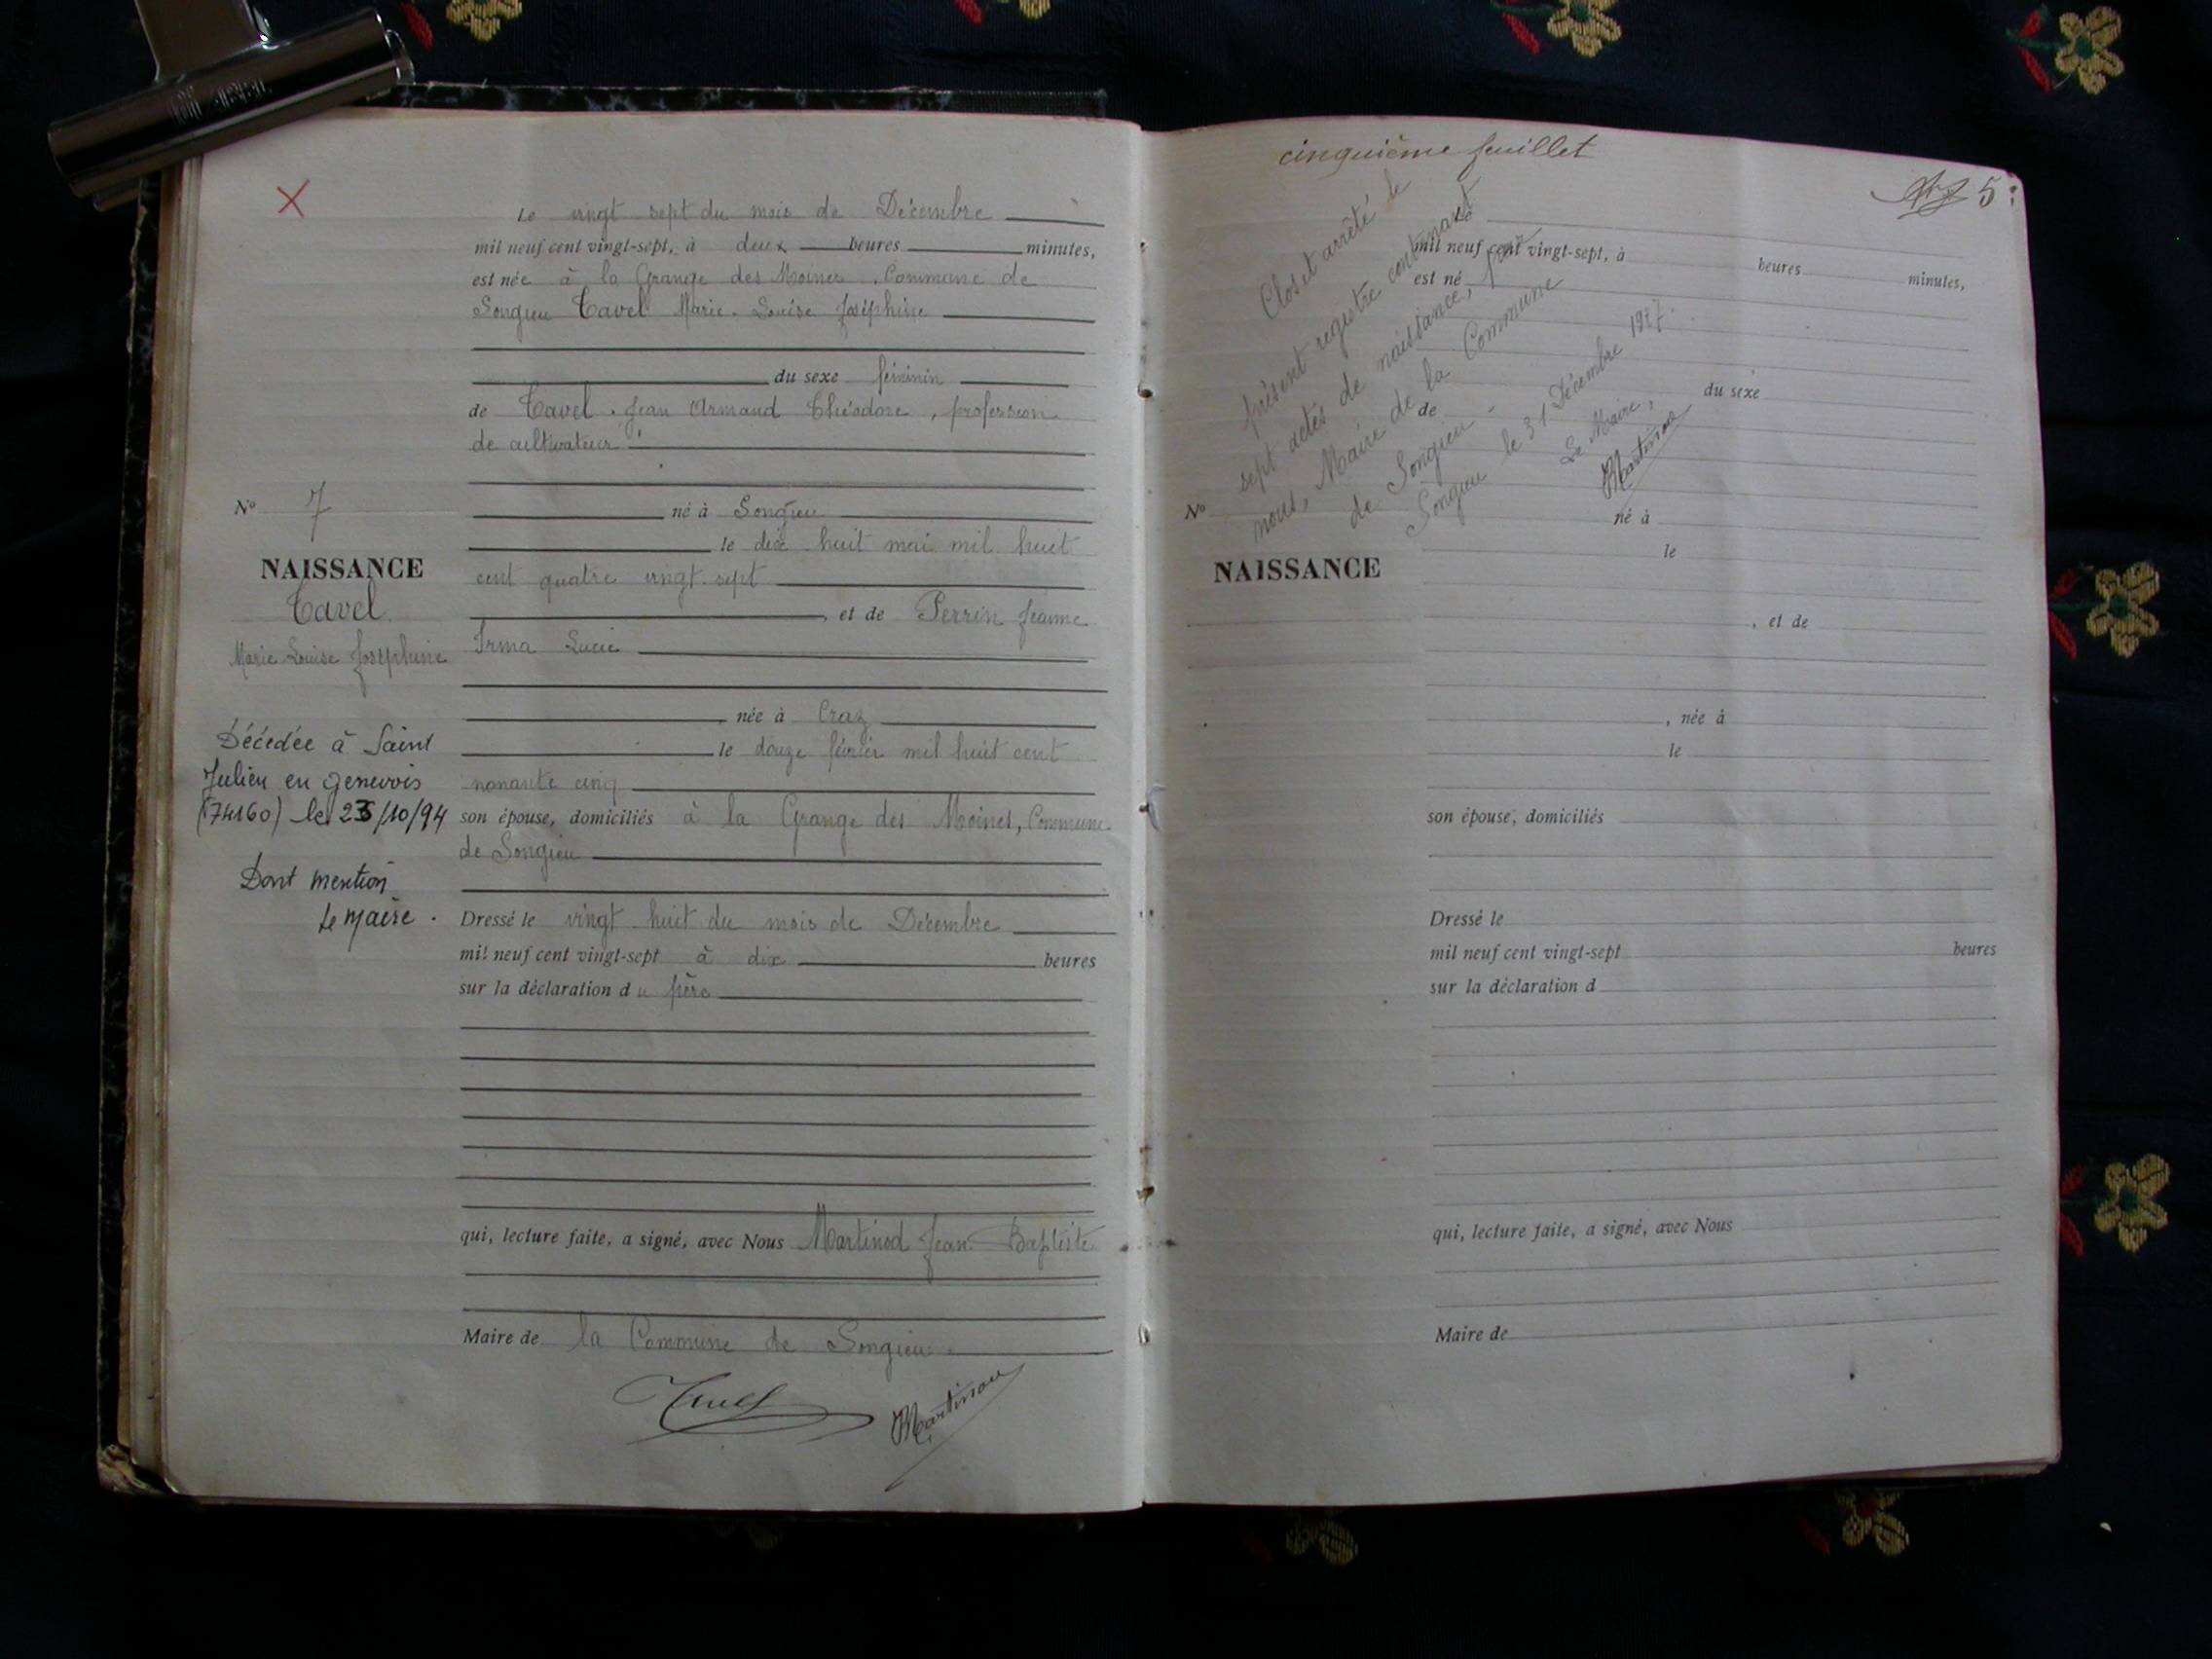 Le vingt sept du mois de Décembre
mil neuf cent vingt-sept, à deux heures minutes,
est née à la Grange des Moines. Commune de
Songieu Tavel Marie. Louise Joséphine
du sexe féminin
de Tavel. Jean Armand Théodore, profession
de cultivateur
N° 7
né à Songieu
le dix huit mai mil huit
NAISSANCE
cent quatre vingt. sept
Tavel.
, et de Perrin Jeanne
Marie Louise Joséphine
Irma Lucie
, née à Craz
Décédée à Saint
Julien en genevois
(74160) le 23/10/94
Dont mention
Le maire.
le douze février mil huit cent
nonante cinq
son épouse, domiciliés à la Grange des Moines, Commune
de Songieu
Dressé le vingt. huit du mois de Décembre
mil neuf cent vingt-sept à dix heures
sur la déclaration du père
qui, lecture faite, a signé, avec Nous Martinod Jean. Baptiste
Maire de la Commune de Songieu.
Tavel
Martinod
cinquième feuillet
5
Clos et arrêté le
présent registre contenant
sept actes de naissance, par
nous, Maire de la Commune
de Songieu
Songieu le 31 Décembre 1927.
Le Maire,
Martinod
Le
mil neuf cent vingt-sept, à heures minutes,
est né
du sexe
de
N°
né à
le
NAISSANCE
, et de
, née à
le
son épouse, domiciliés
Dressé le
mil neuf cent vingt-sept heures
sur la déclaration d
qui, lecture faite, a signé, avec Nous
Maire de